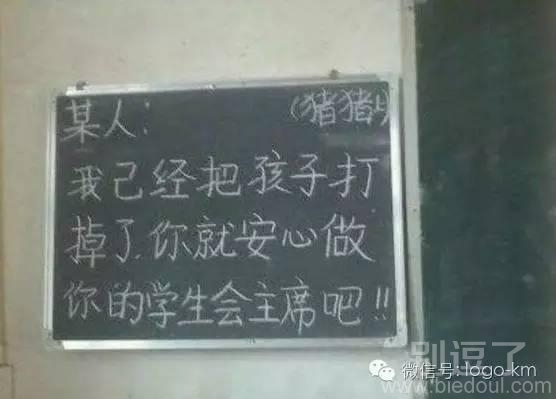 某人： （猪猪上）
我己经把孩子打
掉了.你就安心做
你的学生会主席吧!!
别逗了
微信号: logo-km
www.biedoul.com